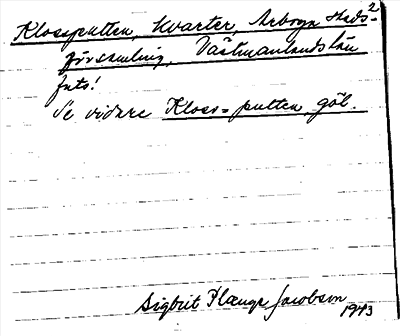 2
Klossputten, kvarter, Arboga Stads-
församling, Västmanlands län
Se vidare Kloss-putten, göl.
Sigbrit Plænge Jacobson
1943